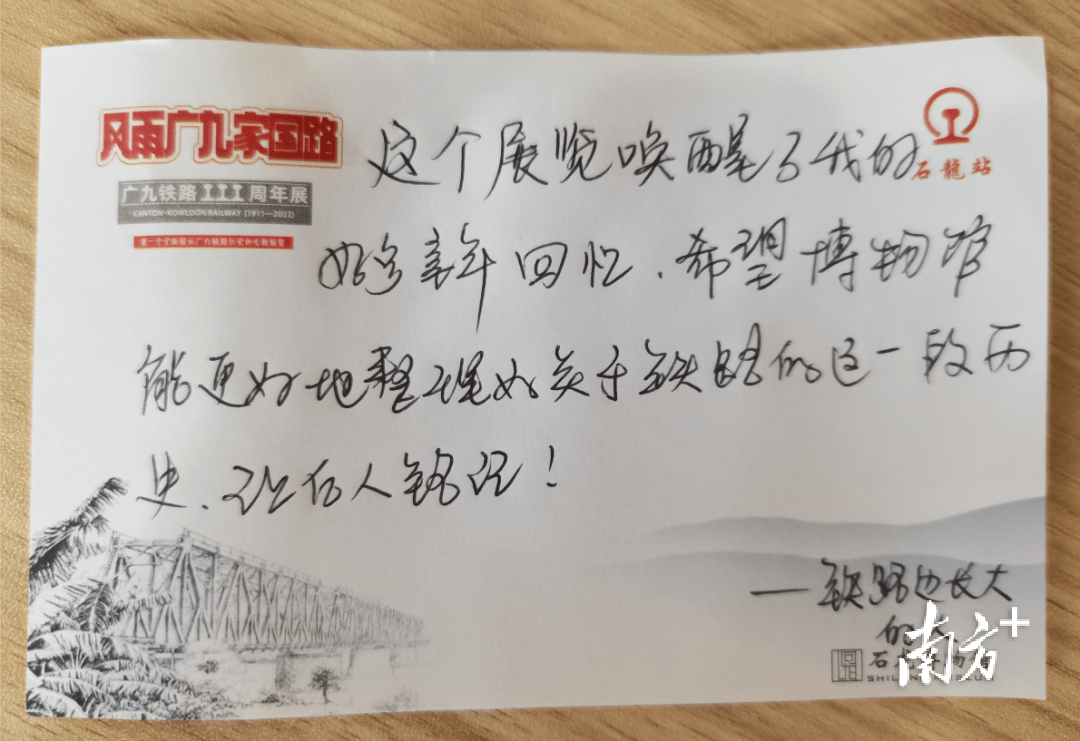 风雨广九家国路
广九铁路111周年展
CANTON-KOWLOON RAILWAY (1911—2022)
石龍站
这个展览唤醒了我的
好多童年回忆、希望博物馆
能更好地整理好关于铁路的这一段历
史、让后人铭记！
—铁路边长大
的
南方+